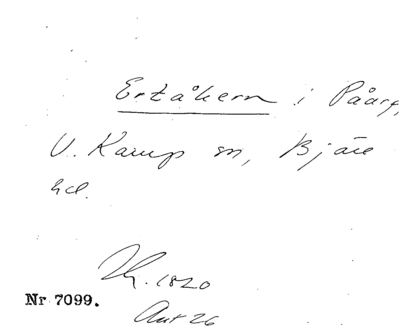 Ertåkern i Påarp,
V. Karup sn, Bjäre
hd.
Lh. 1820
Nr 7099.
Akt 26